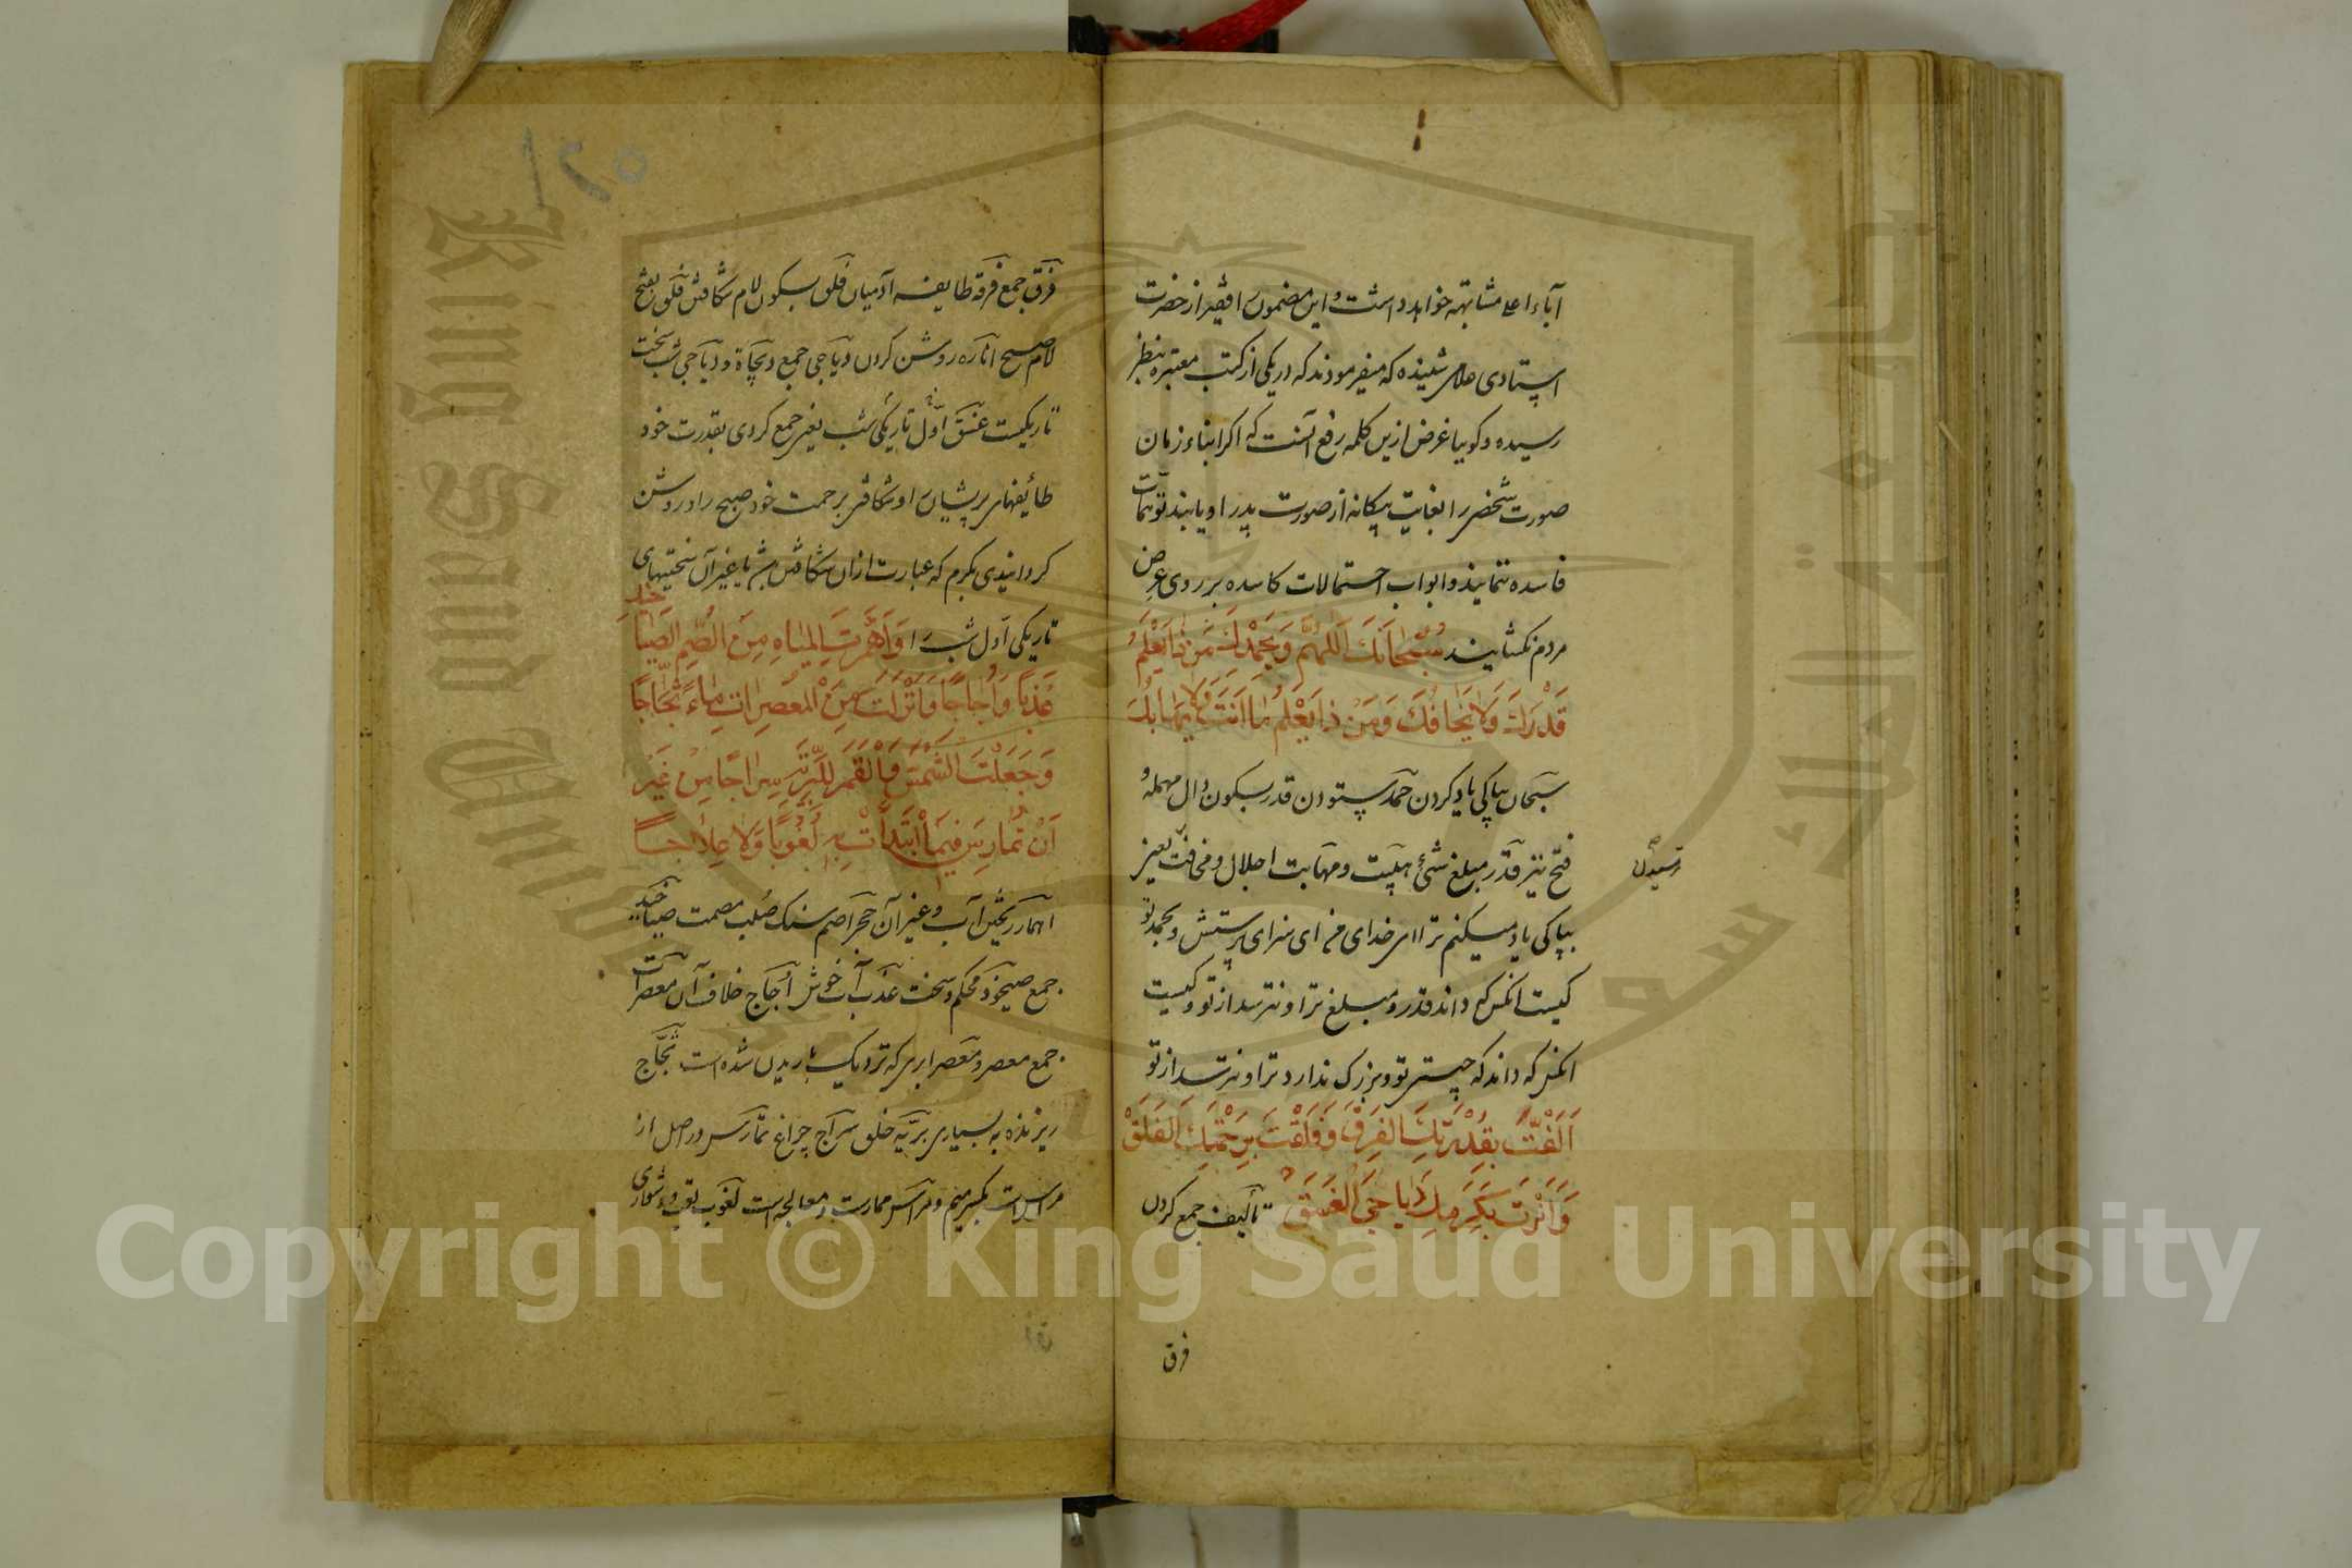 آباء اعلی مشابهت خواهد داشت و این مضمون را فقیر از حضرت
استادی شنیده که میفرمودند که در یکی از کتب معتبره بنظر
رسیده و کویا غرض ازین کلمه رفع آنست که اکر ابناء زمان
صورت شخصی را بغایت بیکانه از صورت پدر او یابند توهمات
فاسده ننمایند و ابواب احتمالات کاسده بر روی عرض
مردم نکشایند سُبْحَانَكَ اللّٰهُمَّ وَبِحَمْدِكَ مَنْ ذَا يَعْلَمُ
قَدْرَكَ وَلَا يَخَافُكَ وَمَنْ ذَا يَعْلَمُ مَا اَنْتَ وَلَا يَهَابُكَ
سبحان بپاکی یاد کردن حمد ستودن قدر بسکون دال مهمله و
فتح نیز قدر مبلغ شئ هیبت و مهابت اجلال و مخافت یعنی
ترسیدن
بپاکی یاد میکنم ترا ای خدای من ای سزای پرستش و بحمد تو
کیست انکس که داند قدر و مبلغ ترا و نترسد از تو و کیست
انکس که داند که چیستی تو و بزرک ندارد ترا و نترسد از تو
اَلَّفْتَ بِقُدْرَتِكَ الْفِرَقَ وَفَلَقْتَ بِرَحْمَتِكَ الْفَلَقَ
وَاَنَرْتَ بِكَرَمِكَ دَيَاجِيَ الْغَسَقِ تألیف جمع کردن
فرق
فرق جمع فرقه طایفه آدمیان فلق بسکون لام شکافتن فلق بفتح
لام صبح اناره روشن کردن دیاجی جمع دیجاة و دیاجی شب سخت
تاریکیست غسق اول تاریکی شب یعنی جمع کردی بقدرت خود
طائفهای پریشان و شکافتی برحمت خود صبح را و روشن
کردانیدی بکرم که عبارت ازان شکافتن باشد یا غیر آن سختیهای
تاریکی اول شب را وَاَنْهَرْتَ الْمِيَاهَ مِنَ الصُّمِّ الصَّيَاخِيدِ
عَذْبًا وَاُجَاجًا وَاَنْزَلْتَ مِنَ الْمُعْصِرَاتِ مَاءً ثَجَّاجًا
وَجَعَلْتَ الشَّمْسَ وَالْقَمَرَ لِلْبَرِيَّةِ سِرَاجًا مِنْ غَيْرِ
اَنْ تُمَارِسَ فِيمَا ابْتَدَأْتَ بِهِ لُغُوبًا وَلَا عِلَاجًا
انهار ریختن آب و غیر آن حجر اصم سنک صلب مصمت صیاخید
جمع صیخود محکم و سخت عذب آب خوش اجاج خلاف آن معصرات
جمع معصر و معصر ابری که نزدیک بباریدن شده است ثجاج
ریزنده به بسیاری بریه خلق سراج چراغ تمارس در اصل از
مراس است بکسر میم و مراس ممارست و معالجه است لغوب تعب و دشواری